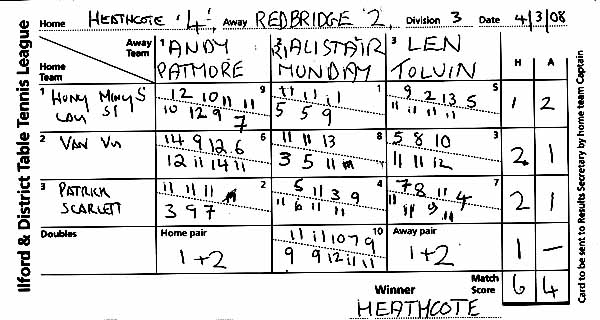 Ilford & District Table Tennis League
Home HEATHCOTE '4' Away REDBRIDGE '2' Division 3 Date 4/3/08
Away Team 1 ANDY PATMORE 2 ALISTAIR MUNDAY 3 LEN TOLVIN H A
Home Team
1 9 1 5
12 10 11 11 11 11 11 9 2 13 5 1 2
10 12 9 7 5 5 9 11 11 11 11
2 VAN VU 6 8 3
14 9 12 6 11 11 13 5 8 10 2 1
12 11 14 11 3 5 11 11 11 12
3 PATRICK SCARLETT 2 4 7
11 11 11 5 11 3 9 7 8 11 4 2 1
3 9 7 11 6 11 11 11 11 9 11
Doubles Home pair 10 Away pair
1+2 11 11 10 7 9 1+2 1 -
9 9 12 11 11
Winner Match Score 6 4
HEATHCOTE
Card to be sent to Results Secretary by home team Captain